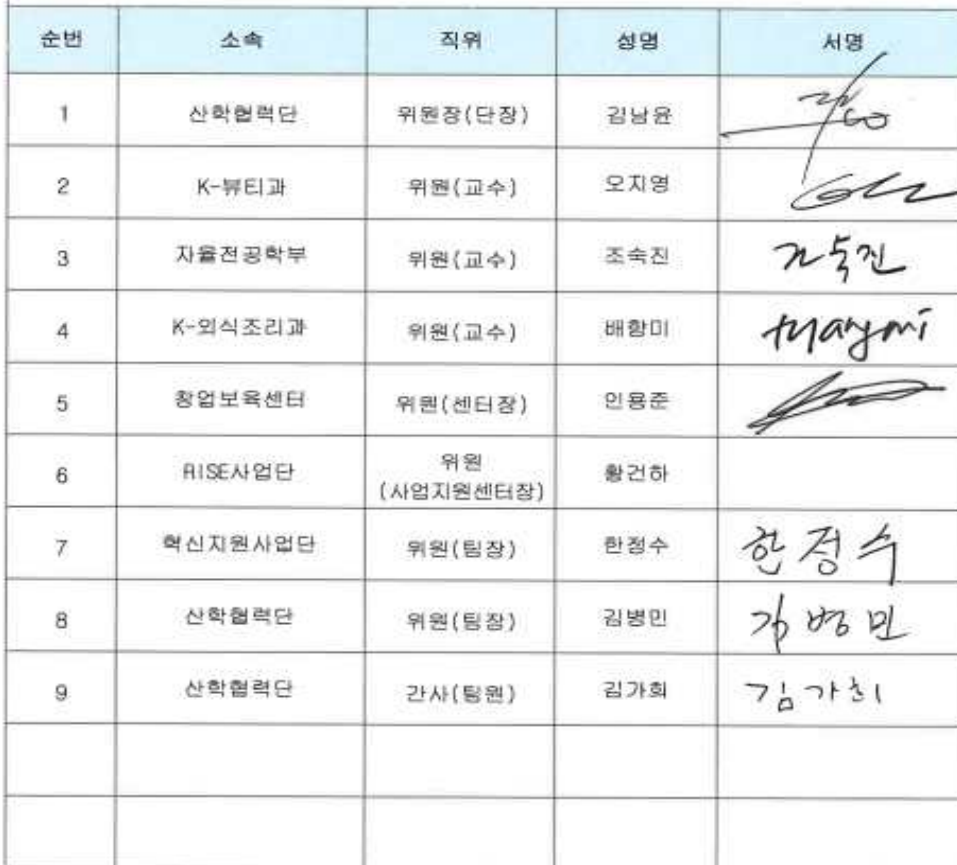 순번 소속 직위 성명 서명
1 산학협력단 위원장(단장) 김남윤
2 K-뷰티과 위원(교수) 오지영
3 자율전공학부 위원(교수) 조숙진 조숙진
4 K-외식조리과 위원(교수) 배항미 Hyangmi
5 창업보육센터 위원(센터장) 인용준
6 RISE사업단 위원
(사업지원센터장) 황건하
7 혁신지원사업단 위원(팀장) 한정수 한정수
8 산학협력단 위원(팀장) 김병민 김병민
9 산학협력단 간사(팀원) 김가희 김가희